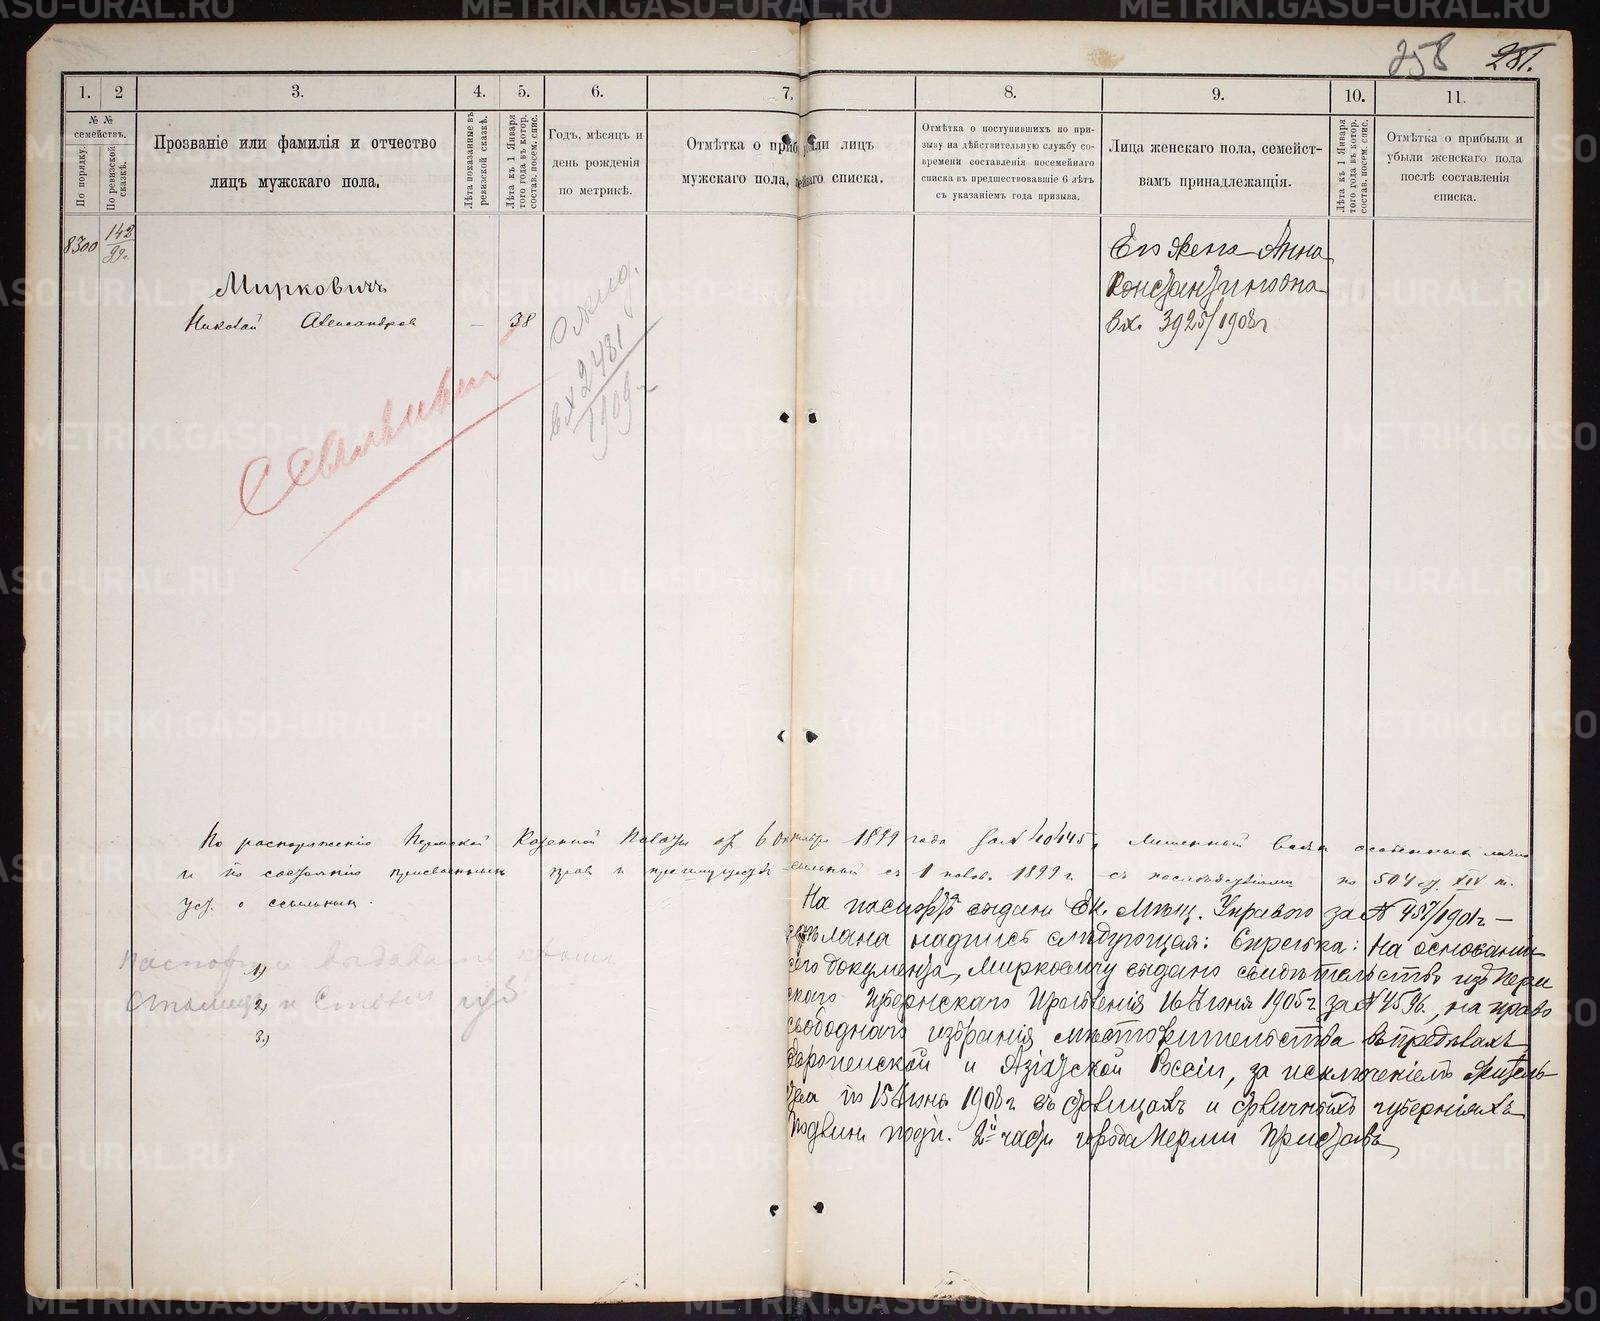 258 281.
1. 2 3. 4. 5. 6. 7. 8. 9. 10. 11.
№ №
семействъ.
По порядку.
По ревизской
сказкѣ.
Прозваніе или фамилія и отчество
лицъ мужскаго пола.
Лѣта показанные въ
ревизской сказкѣ.
Лѣта къ 1 Января
того года въ котор.
состав. посем. спис.
Годъ, мѣсяцъ и
день рожденія
по метрикѣ.
Отмѣтка о лицъ
мужскаго пола, списка.
Отмѣтка о поступившихъ по при-
зыву на дѣйствительную службу со-
времени составленія посемейнаго
списка въ предшествовавшіе 6 лѣтъ
съ указаніемъ года призыва.
Лица женскаго пола, семейст-
вамъ принадлежащія.
Лѣта къ 1 Января
того года въ котор.
состав. посем. спис.
Отмѣтка о прибыли и
убыли женскаго пола
послѣ составленія
списка.
8300
142
99г.
Мирковичъ
Николай Александров — 38
вх 2481
1909г
Его жена Анна
Константиновна
вх. 3925/1908г
По распоряженію Пермской Казенной Палаты от 6 Октября 1899 года за № 40445, лишенный всѣхъ особенныхъ лично
и по состоянію присвоенныхъ правъ и преимуществъ ссыльный съ 1 нояб. 1899 г. съ послѣдствіями по 504 ст. XIV т.
уст. о ссыльных.
На паспортѣ выдан. Ек. Мѣщ. Управою за № 457/1901г —
сдѣлана надпись слѣдующая: Справка: На основаніи
сего документа, Мирковичу выдано свидѣтельство изъ Перм
скаго Губернскаго Правленія 16 Іюня 1905г за № 4596, на право
свободнаго избранія мѣстожительства въ предѣлахъ
Европейской и Азіатской Россіи, за исключеніемъ житель-
ства по 15 Іюня 1908г въ столицахъ и столичныхъ губерніяхъ
Подлин. подп. 2й части города Перми Приставъ
Паспорта выдавать кромѣ
Столицъ и Столич губ
1)
2)
3.)
METRIKI.GASO-URAL.RU